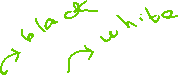 black
white